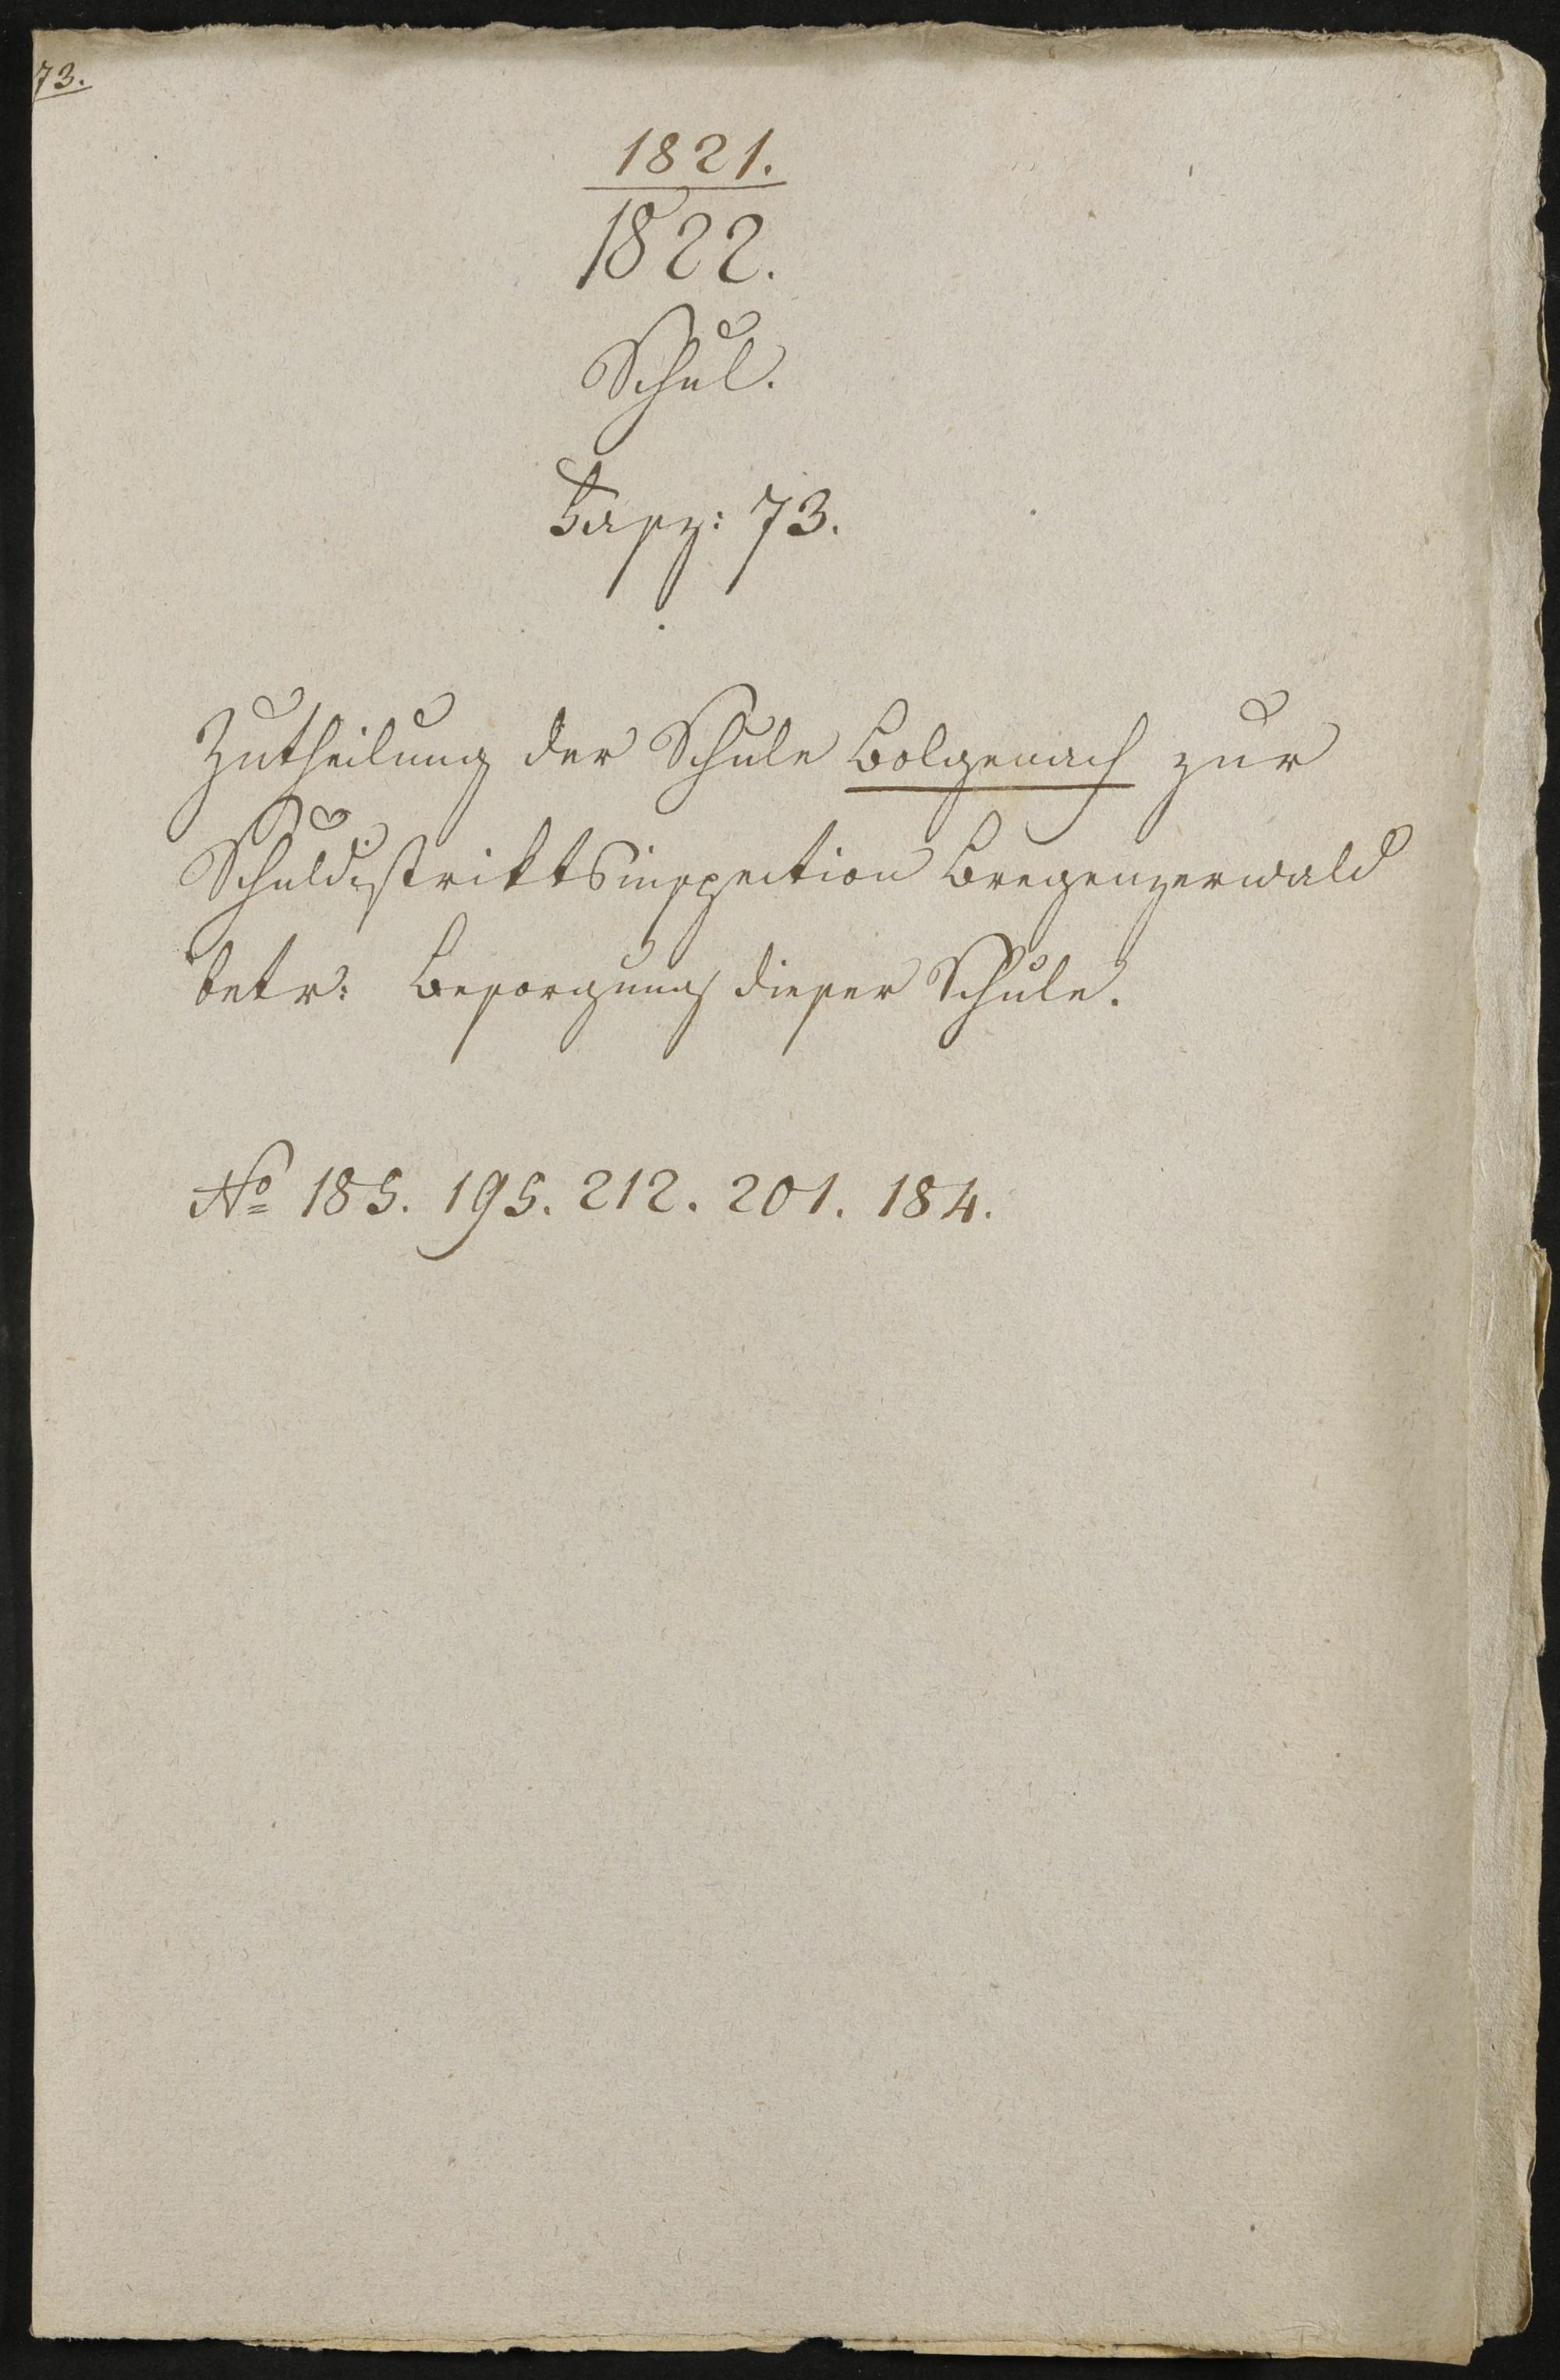 73.
1821.
1822.
Schul.
Fasz: 73.
Zutheilung der Schule Bolgenach zur
Schuldistriktsinspection Bregenzerwald
betr: Besorgung dieser Schule.
No 185. 195. 212. 201. 184.